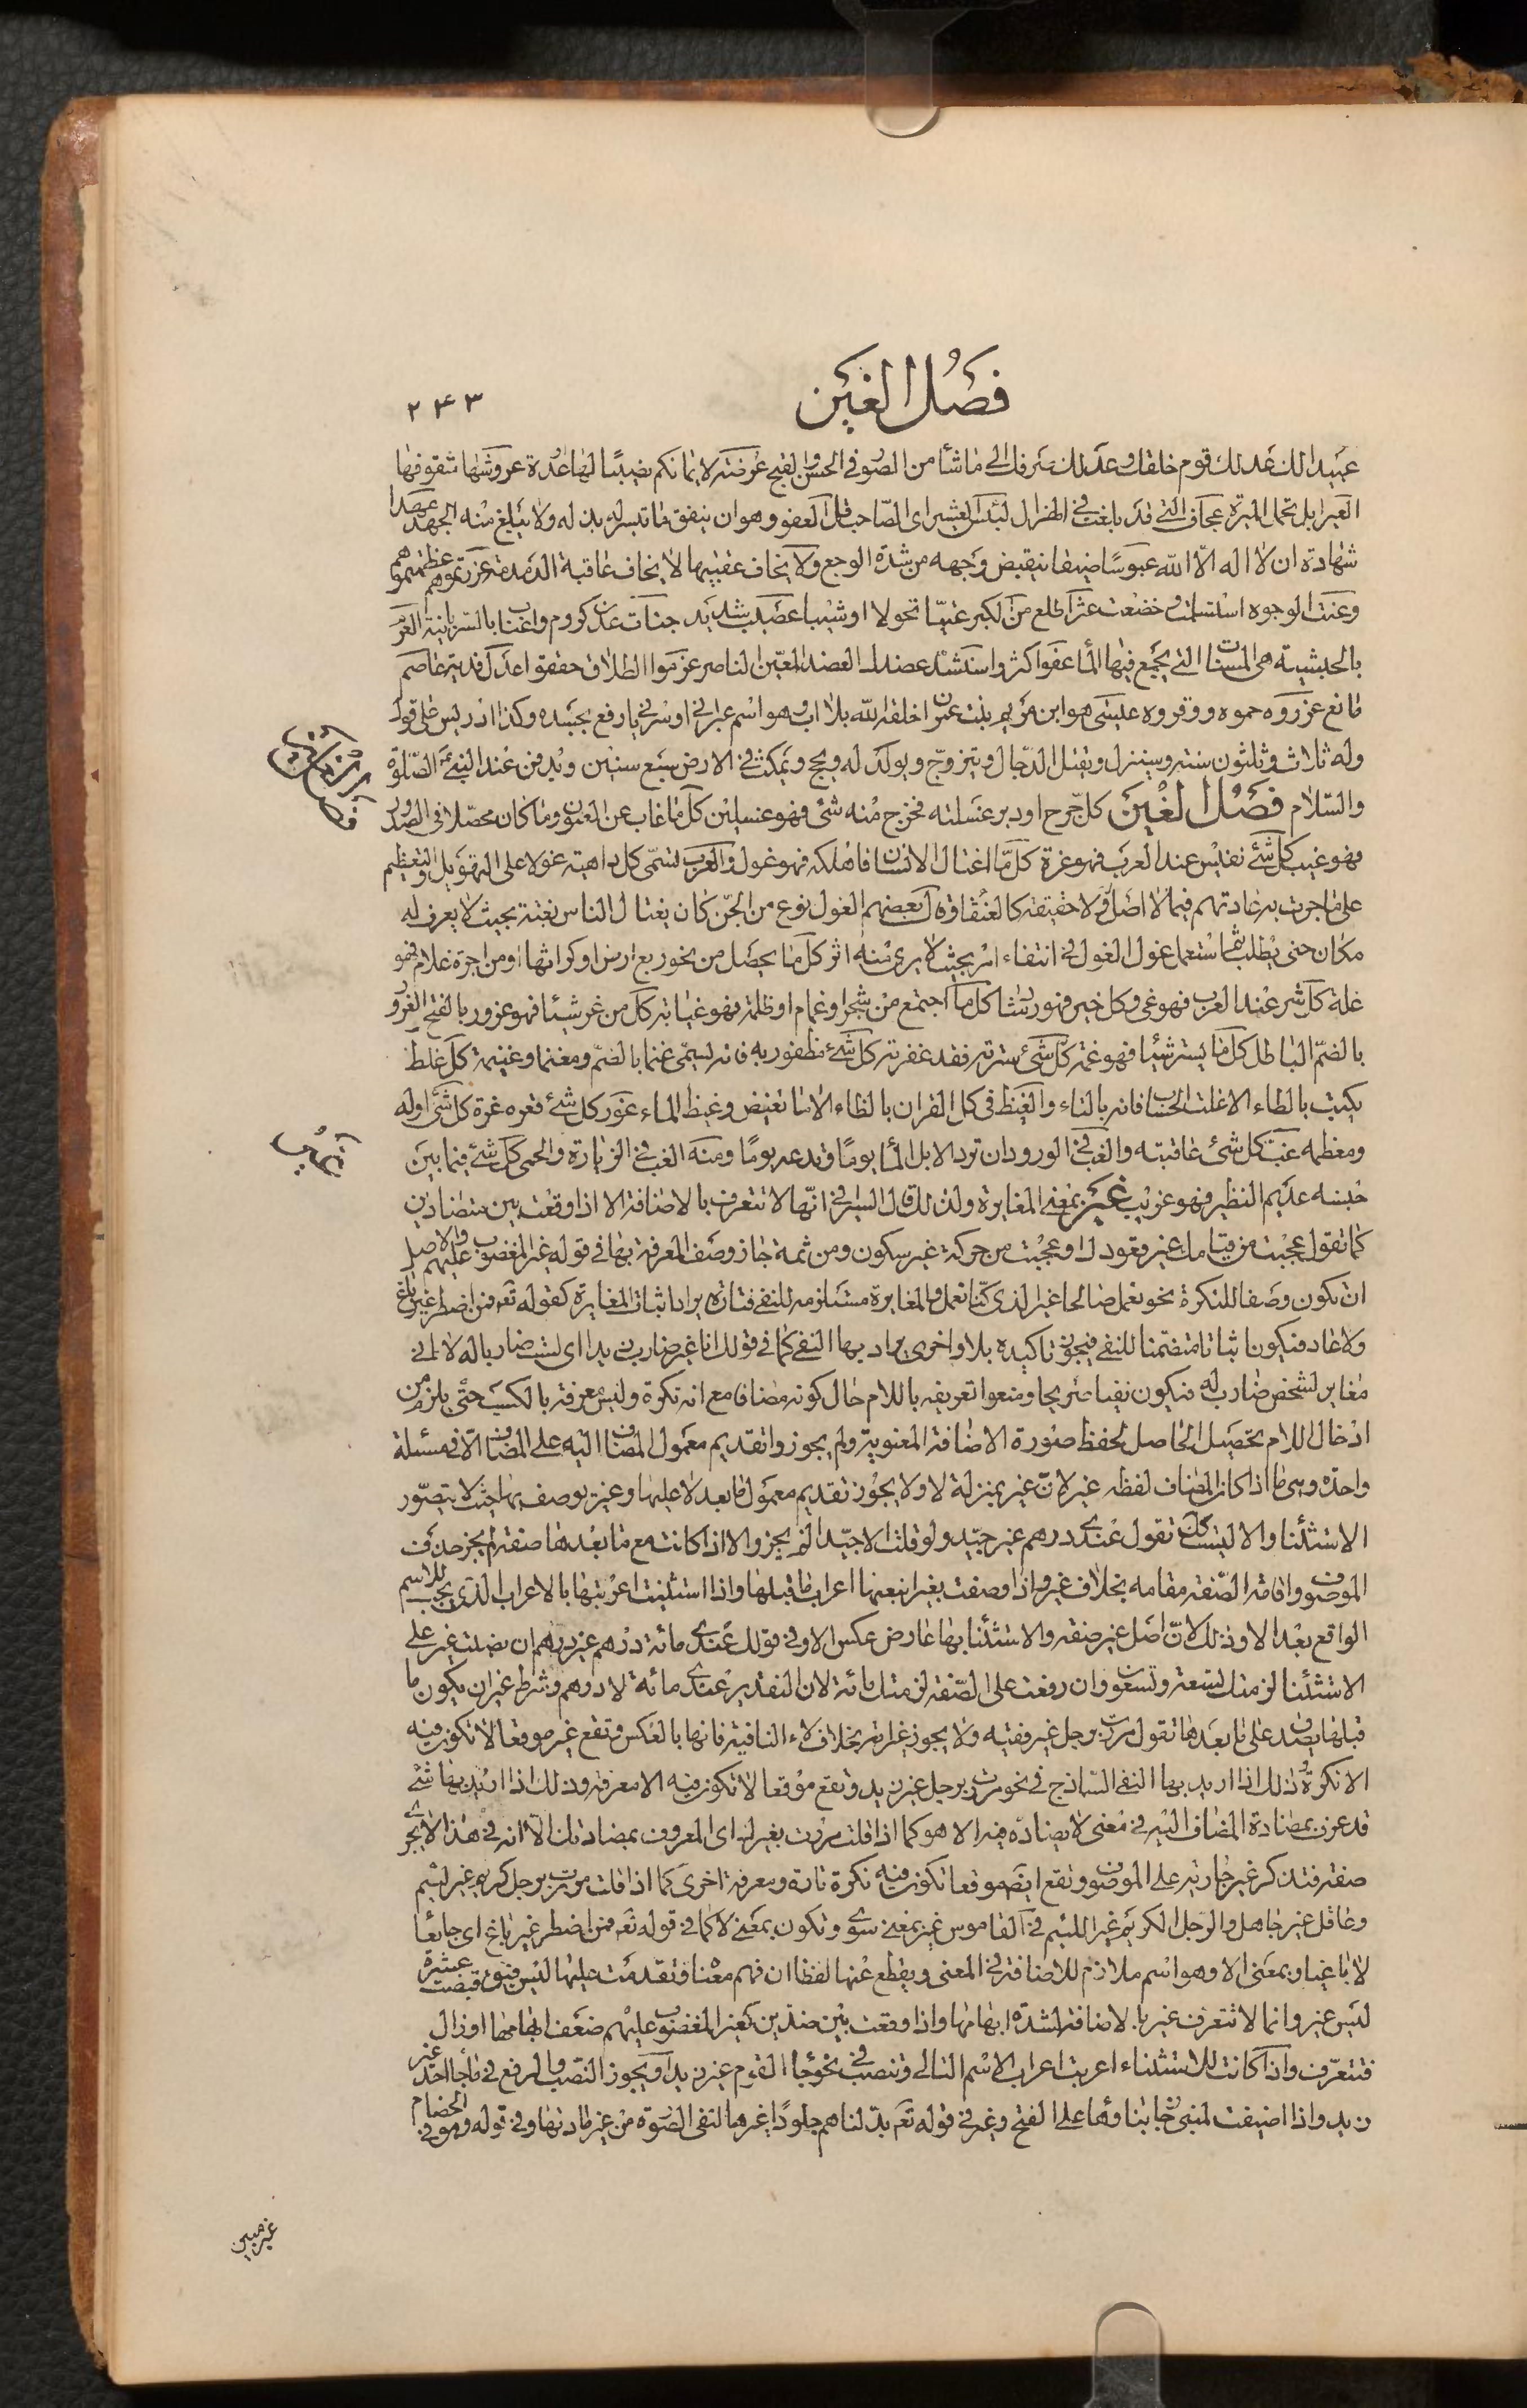 فصل الغين
٢٤٣
عبيدا لك فعدلك قوم خلقك وعدلك صرفك الى ما شاء من الصور في الحسن والقبح عرضة لايمانكم نصيبا لها عدة عروشها سقوفها
العير ابل تحمل الميرة عجاف التي قد بلغت في الهزال لبئس العشير اى الصاحب قل العفو وهو ان ينفق ما تيسر له بذله ولا يبلغ منه الجهد
شهادة ان لا اله الا الله عبوسا ضيقا ينقبض وجهه من شدة الوجع ولا يخاف عقبيها لا يخاف عاقبة الدمدمة عزرتموهم عظمتموهم
وعنت الوجوه استسلمت وخضعت عثر اطلع من الكبر عتيا نحولا او شيبا عصيب شديد جنات عدن كروم واعناب بالسريانية العرم
بالحبشية هى المسنات التي يجمع فيها الماء عفوا كثروا سنشد عضدك العضد المعين الناصر عزموا الطلاق حققوا عدل فدية عاصم
مانع عزروه حموه ووقروه عليسى هو ابن مريم بنت عمران خلقه الله بلا اب وهو اسم عبراني او سرياني رفع بجسده وكذا ادريس على قول
وله ثلاث وثلثون سنة وسينزل ويقتل الدجال ويتزوج ويولد له ويحج ويمكث في الارض سبع سنين ويدفن عند النبي عليه الصلوة
والسلام فصل الغين كل جرح او دبر غسلته فخرج منه شئ فهو غسلين كل ما غاب عن العيون وما كان محصلا في الصدور
فهو غيب كل شئ نفيس عند العرب فهو غرة كل ما اغتال الانسان فاهلكه فهو غول والعرب تسمى كل داهية غولا على التهويل والتعظيم
على ما جرت به عادتهم فيما لا اصل له ولا حقيقة كالعنقاء وقال بعضهم الغول نوع من الجن كان يغتال الناس بغتة بحيث لا يعرف له
مكان حتى يطلب ثم استعمل غول الغول في انتفاء امر بحيث لا يرى منه اثر كل ما يحصل من نحو ريع ارض او كرائها او من اجرة غلام فهو
غلة كل شر عند العرب فهو غى وكل خير فهو رشاد كل ما اجتمع من شجر او غمام او ظلمة فهو غيابة كل من غر شيئا فهو غرور بالفتح الغرور
بالضم الباطل كل ما يستر شيئا فهو غمة كل شئ سترته فقد غفرته كل شئ مظفور به فانه يسمى غنما بالضم ومغنما وغنيمة كل غلط
يكتب بالطاء الا غلت الحساب فانه بالتاء والغيظ في كل القران بالظاء الا تغيض وغيض الماء غور كل شئ قعره غرة كل شئ اوله
ومعظمه غب كل شئ عاقبته والغب في الورود ان ترد الابل الماء يوما وتدعه يوما ومنه الغب في الزيارة والحمى كل شئ فيما بين
جنسه عديم النظير فهو غريب غير بمعنى المغايرة ولذلك قال السيرافي انها لا تتعرف بالاضافة الا اذا وقعت بين متضادين
كما تقول عجبت من قيامك غير قعودك او عجبت من حركة غير سكون ومن ثمة جاز وصف المعرفة بها في قوله غير المغضوب عليهم والاصل
ان يكون وصفا للنكرة نحو نعمل صالحا غير الذى كنا نعمل والمغايرة مستلزمة للنفى فتارة يراد اثبات المغايرة كقوله تعه فمن اضطر غير باغ
ولا عاد فيكون اثباتا متضمنا للنفى فيجوز تاكيده بلا واخرى يراد بها النفى كما في قولك انا غير ضارب زيدا اى لست ضاربا له لا انى
مغاير لشخص ضارب له فيكون نفيا صريحا ومنعوا تعريفه باللام حال كونه مضافا مع انه نكرة وليس معرفة بالكسب حتى يلزم من
ادخال اللام تحصيل الحاصل لحفظ صورة الاضافة المعنوية ولم يجوزوا تقديم معمول المضاف اليه على المضاف الا في مسئلة
واحدة وهى ما اذا كان المضاف لفظه غير لان غير بمنزلة لا ولا يجوز تقديم معمول ما بعد لا عليها وغير يوصف بها حيث لا يتصور
الاستثناء والا ليس كك تقول عندى درهم غير جيد ولو قلت الا جيدا لم يجز والا اذا كانت مع ما بعدها صفة لم يجز حذف
الموصوف واقامة الصفة مقامه بخلاف غير واذا وصفت بغير اتبعتها اعراب ما قبلها واذا استثنيت اعربتها بالاعراب الذى يجب للاسم
الواقع بعد الا وذلك لان اصل غير صفة والاستثناء بها عارض عكس الا وفي قولك عندى مائة درهم غير درهم ان نصبت غير على
الاستثناء لزمتك تسعة وتسعون وان رفعت على الصفة لزمتك مائة لان التقدير عندى مائة لا درهم وشرط غير ان يكون ما
قبلها يصدق على ما بعدها تقول مررت برجل غير فقيه ولا يجوز غير امرأة بخلاف لاء النافية فانها بالعكس وتقع غير موقعا لا تكون فيه
الا نكرة وذلك اذا اريد بها النفى الساذج في نحو مررت برجل غير زيد وتقع موقعا لا تكون فيه الا معرفة وذلك اذا اريد بها شئ
قد عرف بمضادة المضاف اليه في معنى لا يضاده فيه الا هو كما اذا قلت مررت بغيرك اى المعروف بمضادتك الا انه في هذا لا يجرى
صفة فتذكر غير جارية على الموصوف وتقع ايضا موقعا تكون فيه نكرة تارة ومعرفة اخرى كما اذا قلت مررت برجل كريم غير لئيم
وعاقل غير جاهل والرجل الكريم غير اللئيم في القاموس غير بمعنى سوى وتكون بمعنى لا كما في قوله تعه فمن اضطر غير باغ اى جائعا
لا باغيا وبمعنى الا وهو اسم ملازم للاضافة في المعنى ويقطع عنها لفظا ان فهم معناه وتقدمت عليها ليس قبضت عشرة
ليس غير وانما لا تتعرف غير بالاضافة لشدة ابهامها واذا وقعت بين ضدين كغير المغضوب عليهم ضعف ابهامها او زال
فتتعرف واذا كانت للاستثناء اعربت اعراب الاسم التالى وتنصب في نحو جاء القوم غير زيد او يجوز النصب والرفع في ما جاء احد غير
زيد واذا اضيفت لمبنى جاز بناؤها على الفتح وغير في قوله تعه بدلناهم جلودا غيرها لنفى الصورة من غير مادتها وفي قوله وهو في الخصام
غير مبين